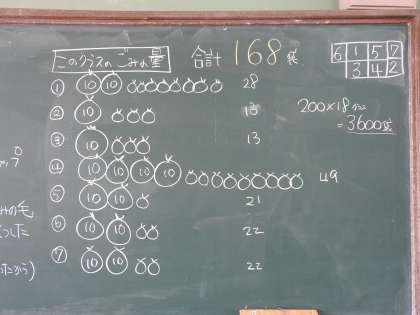 このクラスのごみの量 合計 168袋
6 1 5 7
3 4 2
① 10 10 28
② 10 13
200×18クラス
=3600袋
③ 10 13
④ 10 10 10 10 49
⑤ 10 10 21
⑥ 10 10 22
⑦ 10 10 22